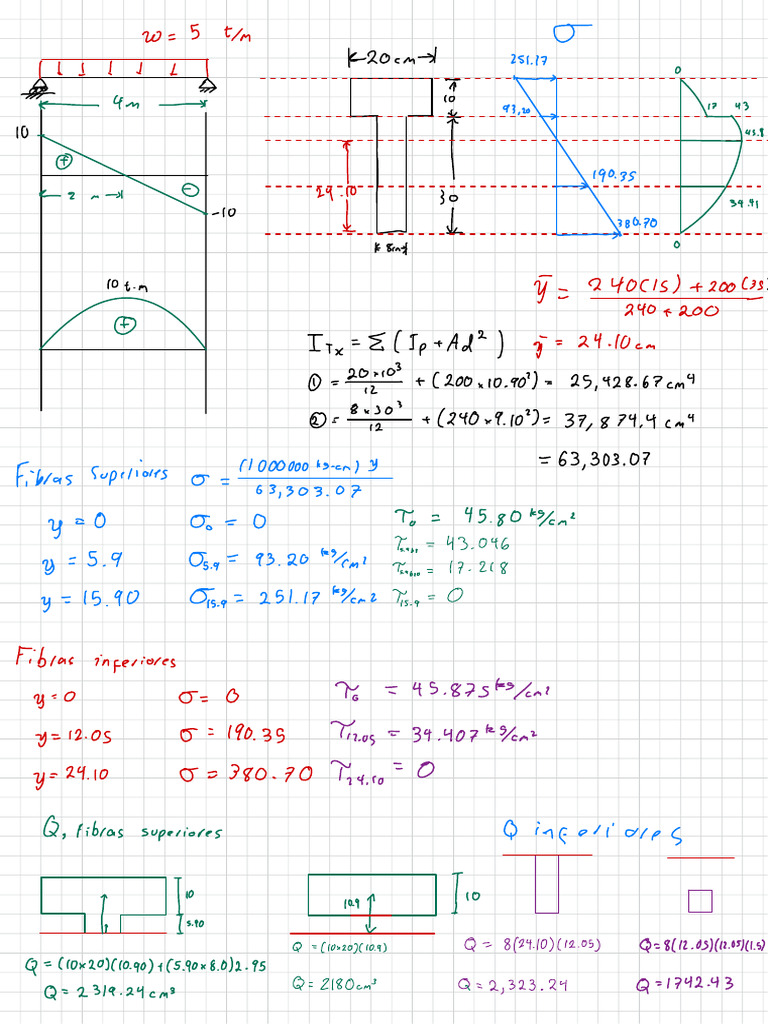 w = 5 t/m
4 m
10
(+)
(-)
2 m
-10
10 t.m
(+)
20cm
10
30
29.10
8cm
σ
251.17
93,20
190.35
380.70
0
17
43
45.8
34.41
0
ȳ = 240(15) + 200(35)
240 + 200
ȳ = 24.10 cm
I_Tx = Σ ( Ip + Ad² )
① = 20×10³/12 + (200 × 10.90²) = 25,428.67 cm⁴
② = 8×30³/12 + (240 × 9.10²) = 37,874,4 cm⁴
= 63,303.07
Fibras Superiores σ = (1000000 kg-cm) y / 63,303.07
y = 0 σ₀ = 0 τ₀ = 45.80 kg/cm²
y = 5.9 σ5.9 = 93.20 kg/cm²
= 43.046
= 17.218
y = 15.90 σ15.9 = 251.17 kg/cm² τ15.9 = 0
Fibras inferiores
y = 0 σ = 0 τ₀ = 45.875 kg/cm²
y = 12.05 σ = 190.35 τ12.05 = 34.407 kg/cm²
y = 24.10 σ = 380.70 τ24.10 = 0
Q, fibras superiores
Q inferiores
10
5.90
10.9
10
Q = (10×20)(10.90) + (5.90 × 8.0) 2.95
Q = 2319.24 cm³
Q = (10×20)(10.9)
Q = 2180 cm³
Q = 8(24.10)(12.05)
Q = 2,323.24
Q = 8(12.05)(12.05)(1.5)
Q = 1742.43